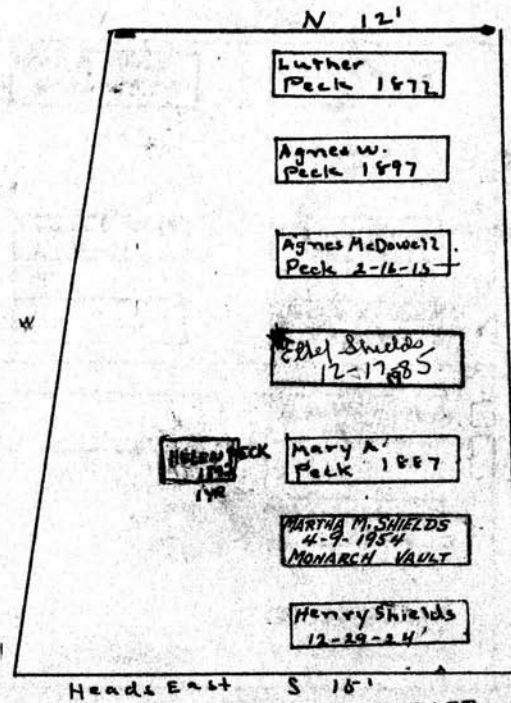 N 12'
Luther
Peck 1872
Agnes W.
Peck 1897
Agnes McDowell
Peck 2-16-15
W
Ethel Shields
12-17-1985
HELEN PECK
1 YR
Mary A.
Peck 1887
MARTHA M. SHIELDS
4-9-1954
MONARCH VAULT
Henry Shields
12-29-24
Heads East S 15'